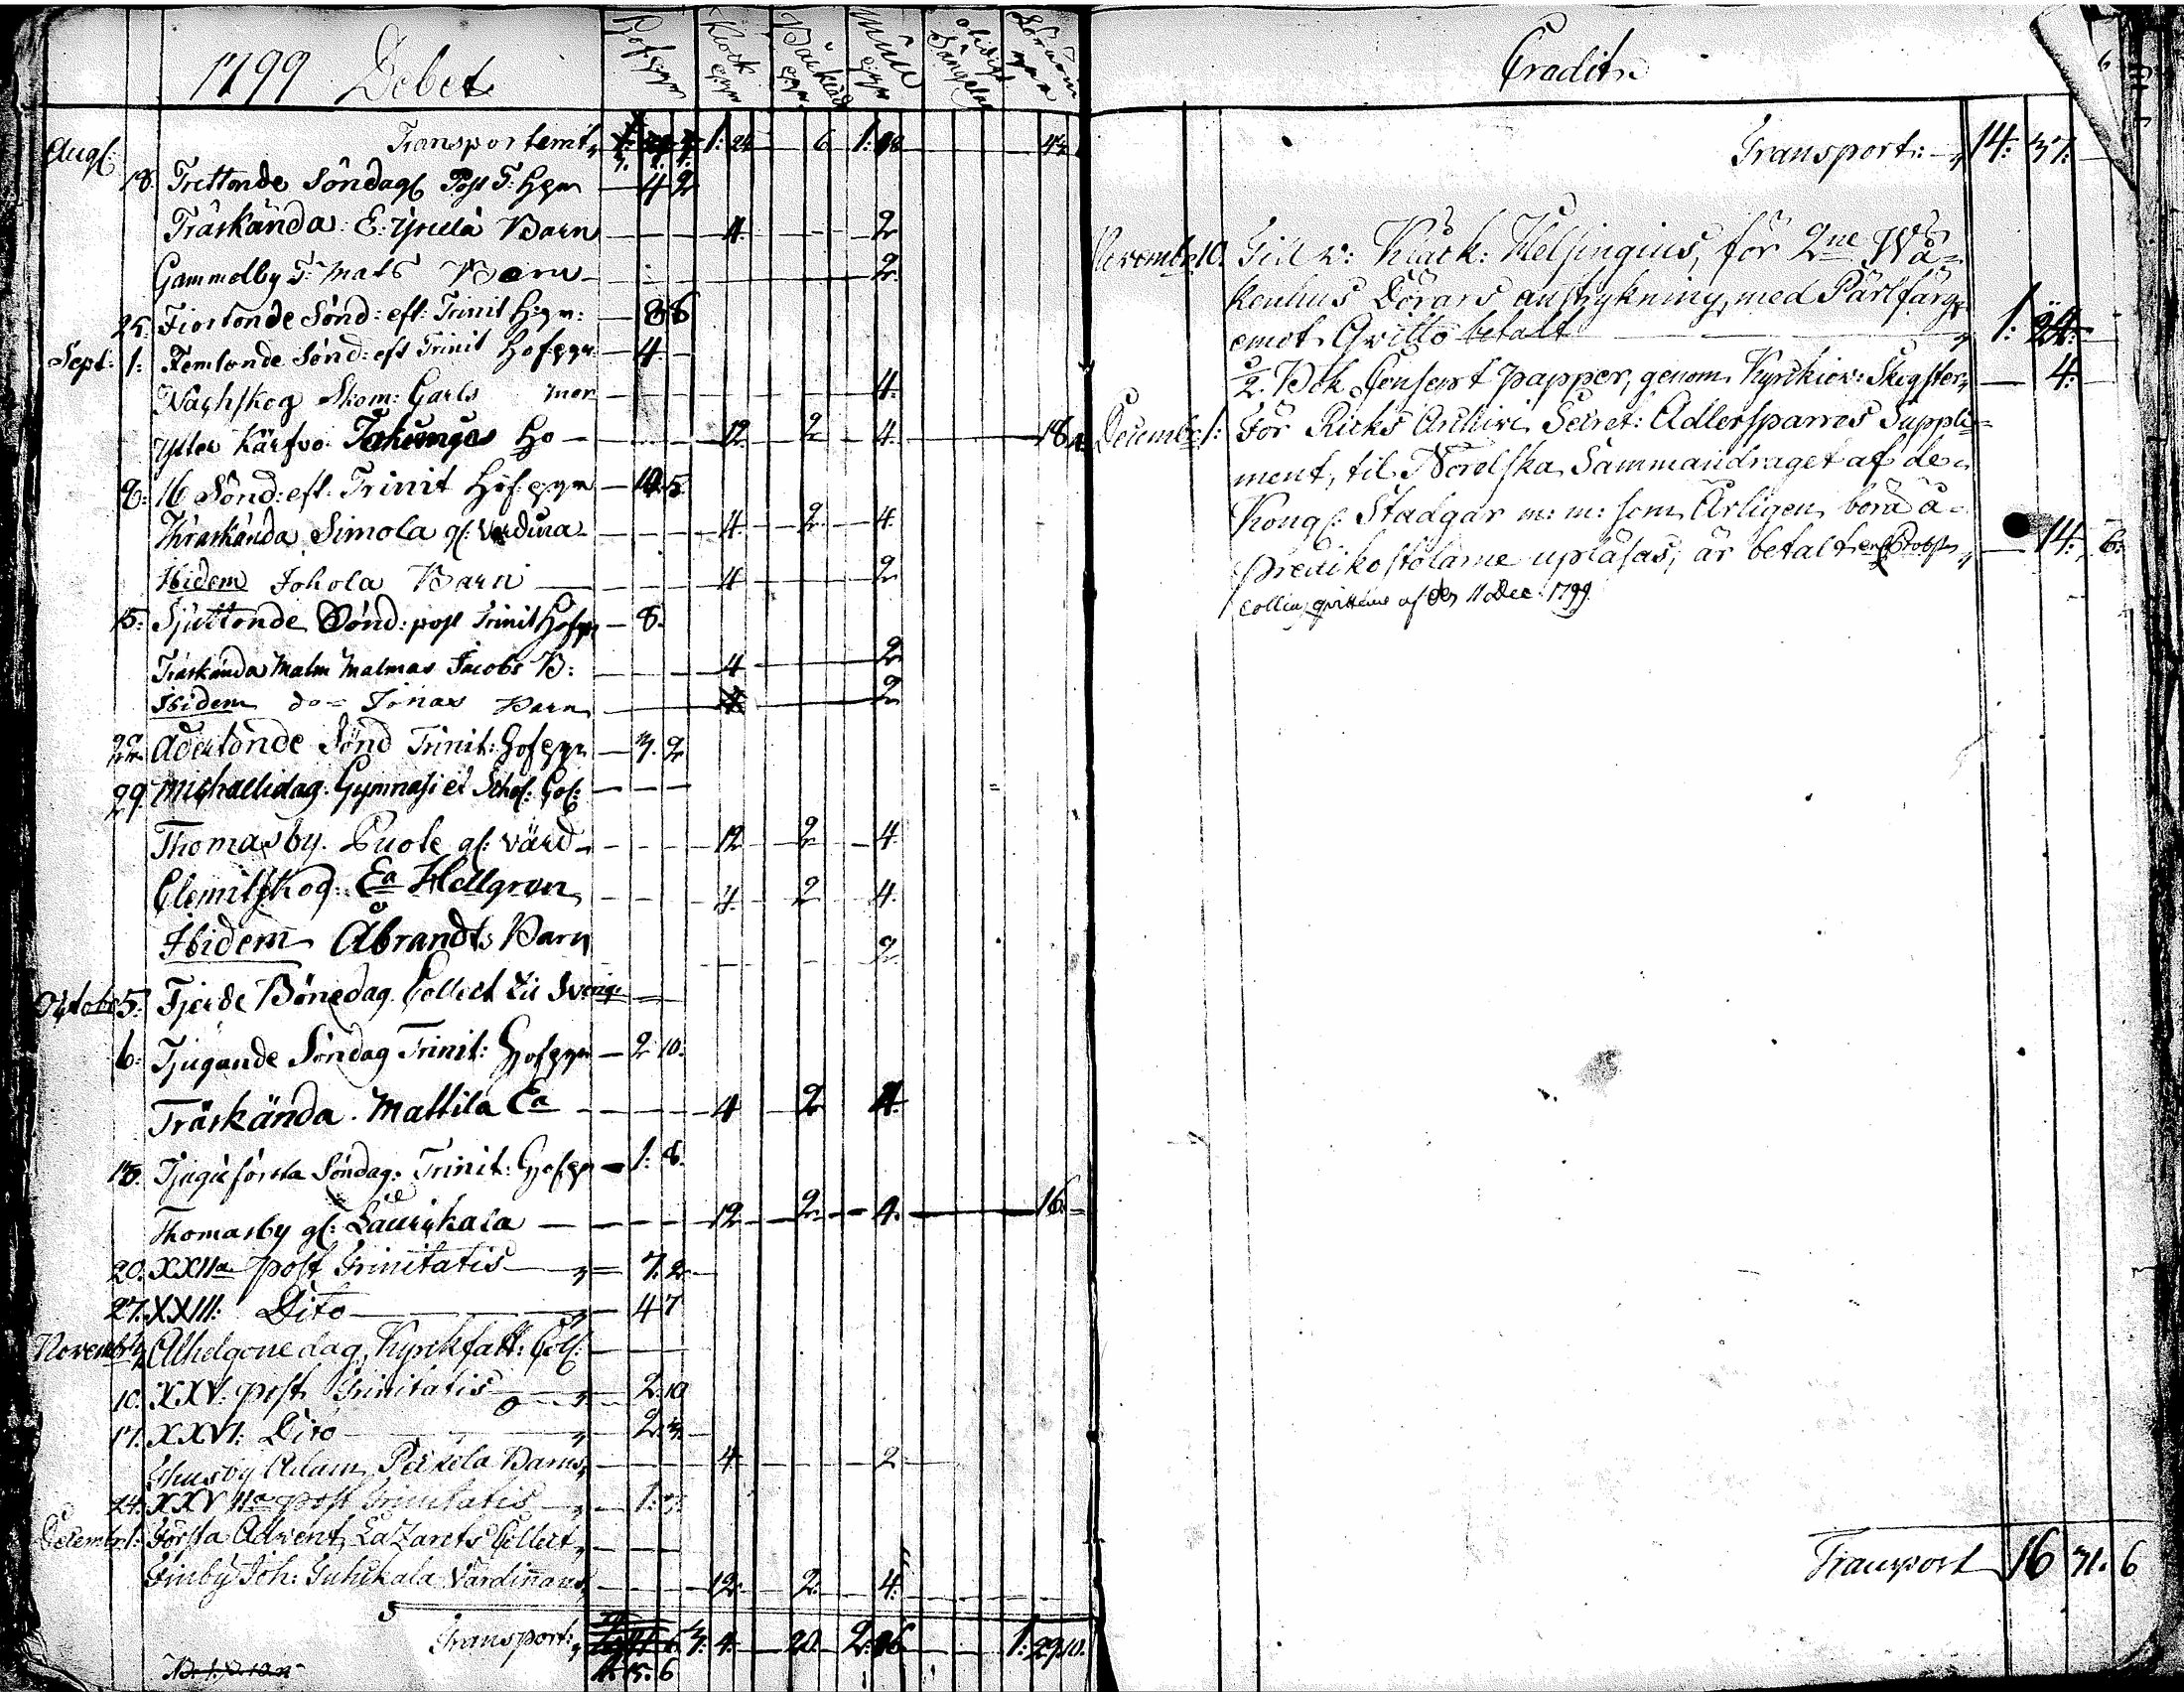 1799 Debet
Hofpgr Klock pgr Bårkläd pgr Mull pgr
Aug: Transporterat 1: 24 6 1: 18
18. Trettonde Söndag: Post T: Hpgr 4 2
Träskända: E: Yrielä Barn 4 2
Gammelby T: Mats Barn 2
25. Fiortonde Sönd: eft: Trinit H:gr: 8 6
Sept: 1: Femtonde Sönd: eft Trinit Hof:pgr 4
Skom: Carls mor 4
Ytter Kärfvo Ho 12 2 4 18
8: 16 Sönd: eft. Trinit Hof:pgr 10 5
Thräskända Simola gl: Värdina 4 2 4
Ibidem Johola Barn 4 2
15: Sjuttonde Sönd: post Trinit Hofpgr 8
Träskända Malm Malmas Jacobs B: 4 2
Ibidem do Jonas Barn 4 2
22 Adertonde Sönd Trinit: Hofpgr 3. 2
29. Michaelidag. Gymnasi et Schol: Col:
Thomasby. Puole gl: värd 12 2 4
Clemitskog: Ea Hellgren 4 2 4
Ibidem Åbrandts Barn 2
Octobr 5: Fjerde Bönedag. Collect til Sverige
6: Tjugande Söndag Trinit: Hofpgr 2 10
Träskända. Mattila Ea 4 2 4
13. Tjuguförsta Söndag: Trinit: Hofpgr 1: 8
Thomasby gl: Laurikala 12 2 4 16
20. XXIIa post Trinitatis 7. 2
27. XXIII: Dito 4 7
Novemb: Alhelgonedag, Kyrkfatt: Col:
10. XXV. post Trinitatis 2. 10
17. XXVI: Dito 2. 3
Adam Perkola Barns 4 2
24. XXVIIa post Trinitatis 1:
Decembr 1: Första Advent, Lazarets Collect
Finby Joh: Juhikala Värdinans 12 2 4
Transport: 3: 4 20. 2: 26 1: 29 10.
11. 15. 6
Credit
Transport: 14: 37.
Novembr 10. Til v: Klock: Helsingius, för 2ne Wå-
kenhus Dörars anstrykning, med Pärlfärg,
emot Qvitto betalt 1: 24.
1/2 Bok Consept papper, genom Kyrkiov: Skogster 4
Decembr 1: För Riks Archivi Secret: Adlersparres Supple-
ment, til Norelska Sammandraget af de
Kongl: Stadgar m: m: som Årligen böra å
Predikostolarne upläsas, är betalt enl: Probst 14. 6.
Collin, qvittens af den 11 Dec: 1799
Transport 16 31. 6